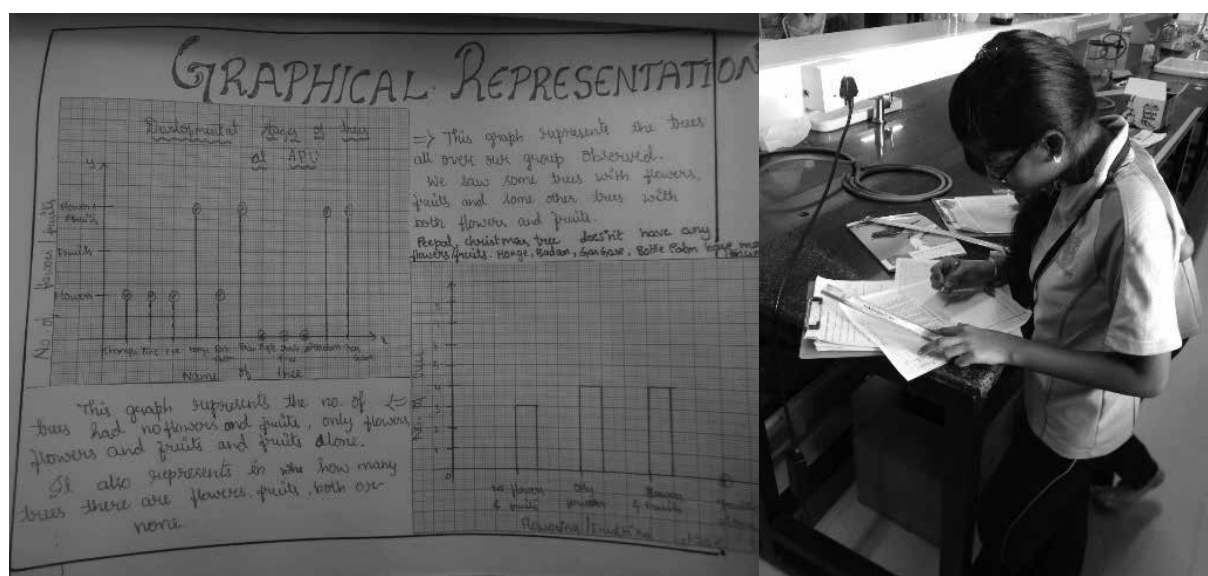 GRAPHICAL REPRESENTATION
Developmental stages of trees
of APU
y
Flowers
Fruits
Fruits
Flowers
No. of flowers/fruits
x
Name of Tree
=> This graph represents the trees
all over our group observed.
We saw some trees with flowers,
fruits and some other trees with
both flowers and fruits.
Peepal, christmas tree doesn't have any
flowers/fruits. Honge, Badam, Bottle Palm have
This graph represents the no. of <=
trees had no flowers and fruits, only flowers,
flowers and fruits and fruits alone.
It also represents in how many
trees there are flowers, fruits, both or
none
No. of
0
No flowers
& fruits
Only
Flowers
& fruits
Flowering/Fruiting